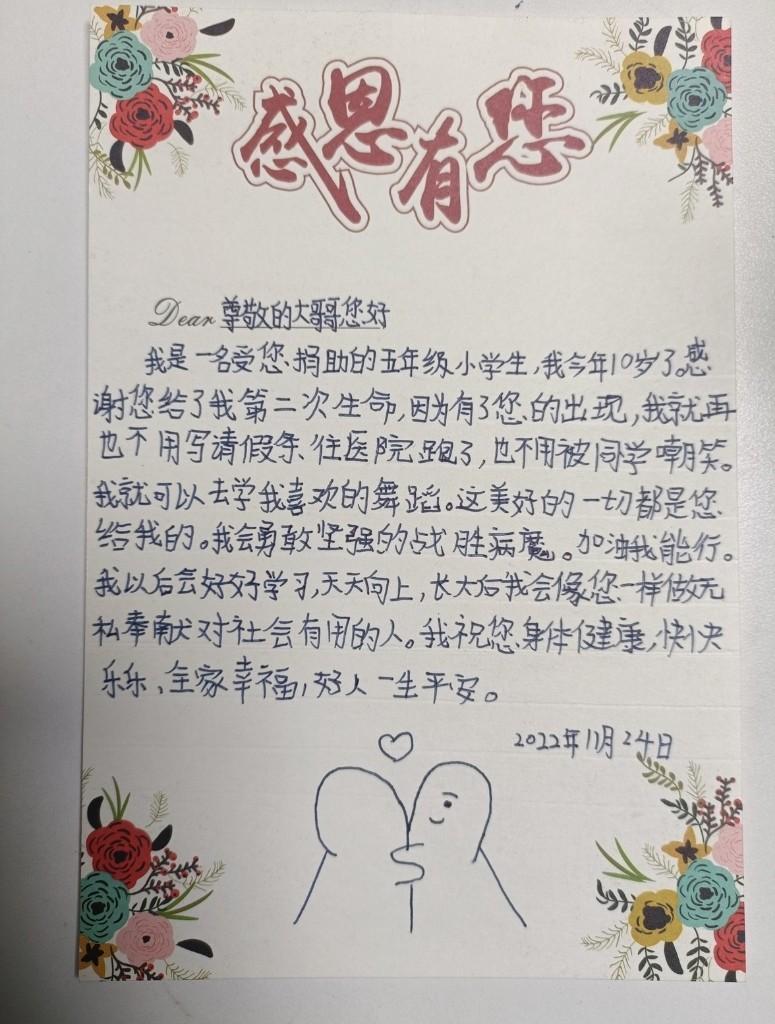 感恩有您
Dear 尊敬的大哥您好
我是一名受您捐助的五年级小学生,我今年10岁了。感
谢您给了我第二次生命,因为有了您的出现,我就再
也不用写请假条、往医院跑了,也不用被同学嘲笑。
我就可以去学我喜欢的舞蹈。这美好的一切都是您
给我的。我会勇敢坚强的战胜病魔。加油我能行。
我以后会好好学习,天天向上,长大后我会像您一样做无
私奉献对社会有用的人。我祝您身体健康,快快
乐乐、全家幸福,好人一生平安。
2022年11月24日